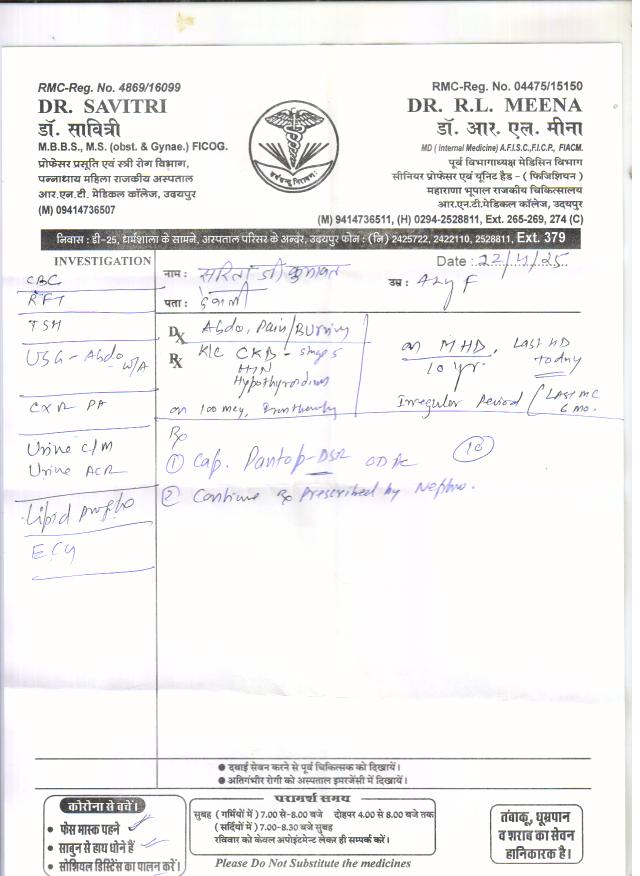 RMC-Reg. No. 4869/16099
DR. SAVITRI
डॉ. सावित्री
M.B.B.S., M.S. (obst. & Gynae.) FICOG.
प्रोफेसर प्रसूति एवं स्त्री रोग विभाग,
पन्नाधाय महिला राजकीय अस्पताल
आर.एन.टी. मेडिकल कॉलेज, उदयपुर
(M) 09414736507
RMC-Reg. No. 04475/15150
DR. R.L. MEENA
डॉ. आर. एल. मीना
MD ( Internal Medicine) A.F.I.S.C.,F.I.C.P., FIACM.
पूर्व विभागाध्यक्ष मेडिसिन विभाग
सीनियर प्रोफेसर एवं यूनिट हैड - ( फिजिशियन )
महाराणा भूपाल राजकीय चिकित्सालय
आर.एन.टी.मेडिकल कॉलेज, उदयपुर
(M) 9414736511, (H) 0294-2528811, Ext. 265-269, 274 (C)
निवास : डी-25, धर्मशाला के सामने, अस्पताल परिसर के अन्दर, उदयपुर फोन : (नि) 2425722, 2422110, 2528811, Ext. 379
INVESTIGATION
CBC
RFT
TSH
USG - Abdo W/A
CXR PA
Urine C/M
Urine ACR
Lipid profile
ECG
नाम :
Date : 22/4/25
पता :
उम्र : 42y F
Dx Abdo. Pain/Burning
Rx K/C CKD - stage 5
HTN
Hypothyroidism
on 100 mcg,
on MHD, Last HD today
10 yr.
Irregular Period / Last MC 6 mo.
Rx
① Cap. Pantop-DSR OD AC 10
② Continue Rx Prescribed by Nephro.
● दवाई सेवन करने से पूर्व चिकित्सक को दिखायें।
● अतिगंभीर रोगी को अस्पताल इमरजेंसी में दिखायें।
कोरोना से बचें।
• फेस मास्क पहने
• साबुन से हाथ धोने हैं
• सोशियल डिस्टिेंस का पालन करें।
परामर्श समय
सुबह ( गर्मियों में ) 7.00 से-8.00 बजे दोहपर 4.00 से 8.00 बजे तक
( सर्दियों में ) 7.00-8.30 बजे सुबह
रविवार को केवल अपोइंटमेन्ट लेकर ही सम्पर्क करें।
Please Do Not Substitute the medicines
तंबाकू, धूम्रपान
व शराब का सेवन
हानिकारक है।